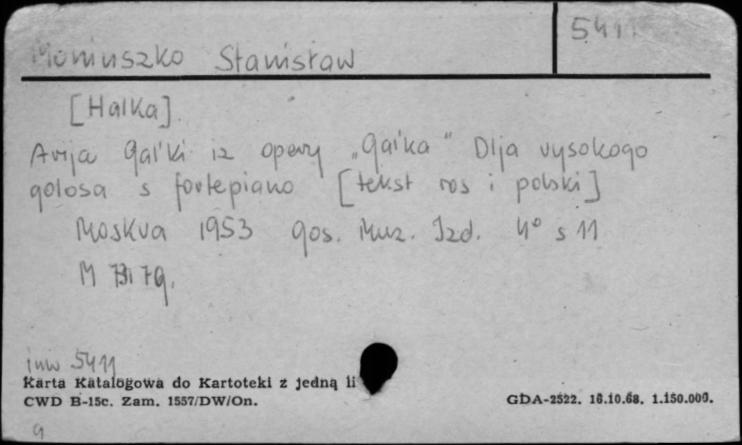 5411
Moniuszko Stanisław
[Halka].
Arija Gal'ki iz opery „Gal'ka" Dlja vysokogo
golosa s fortepiano [tekst ros i polski]
Moskva 1953 gos. Muz. Izd. 4° s 11
M
inw 5411
Karta Katalogowa do Kartoteki z jedną li
CWD B-15c. Zam. 1557/DW/On.
GDA-2522. 16.10.68. 1.150.000.